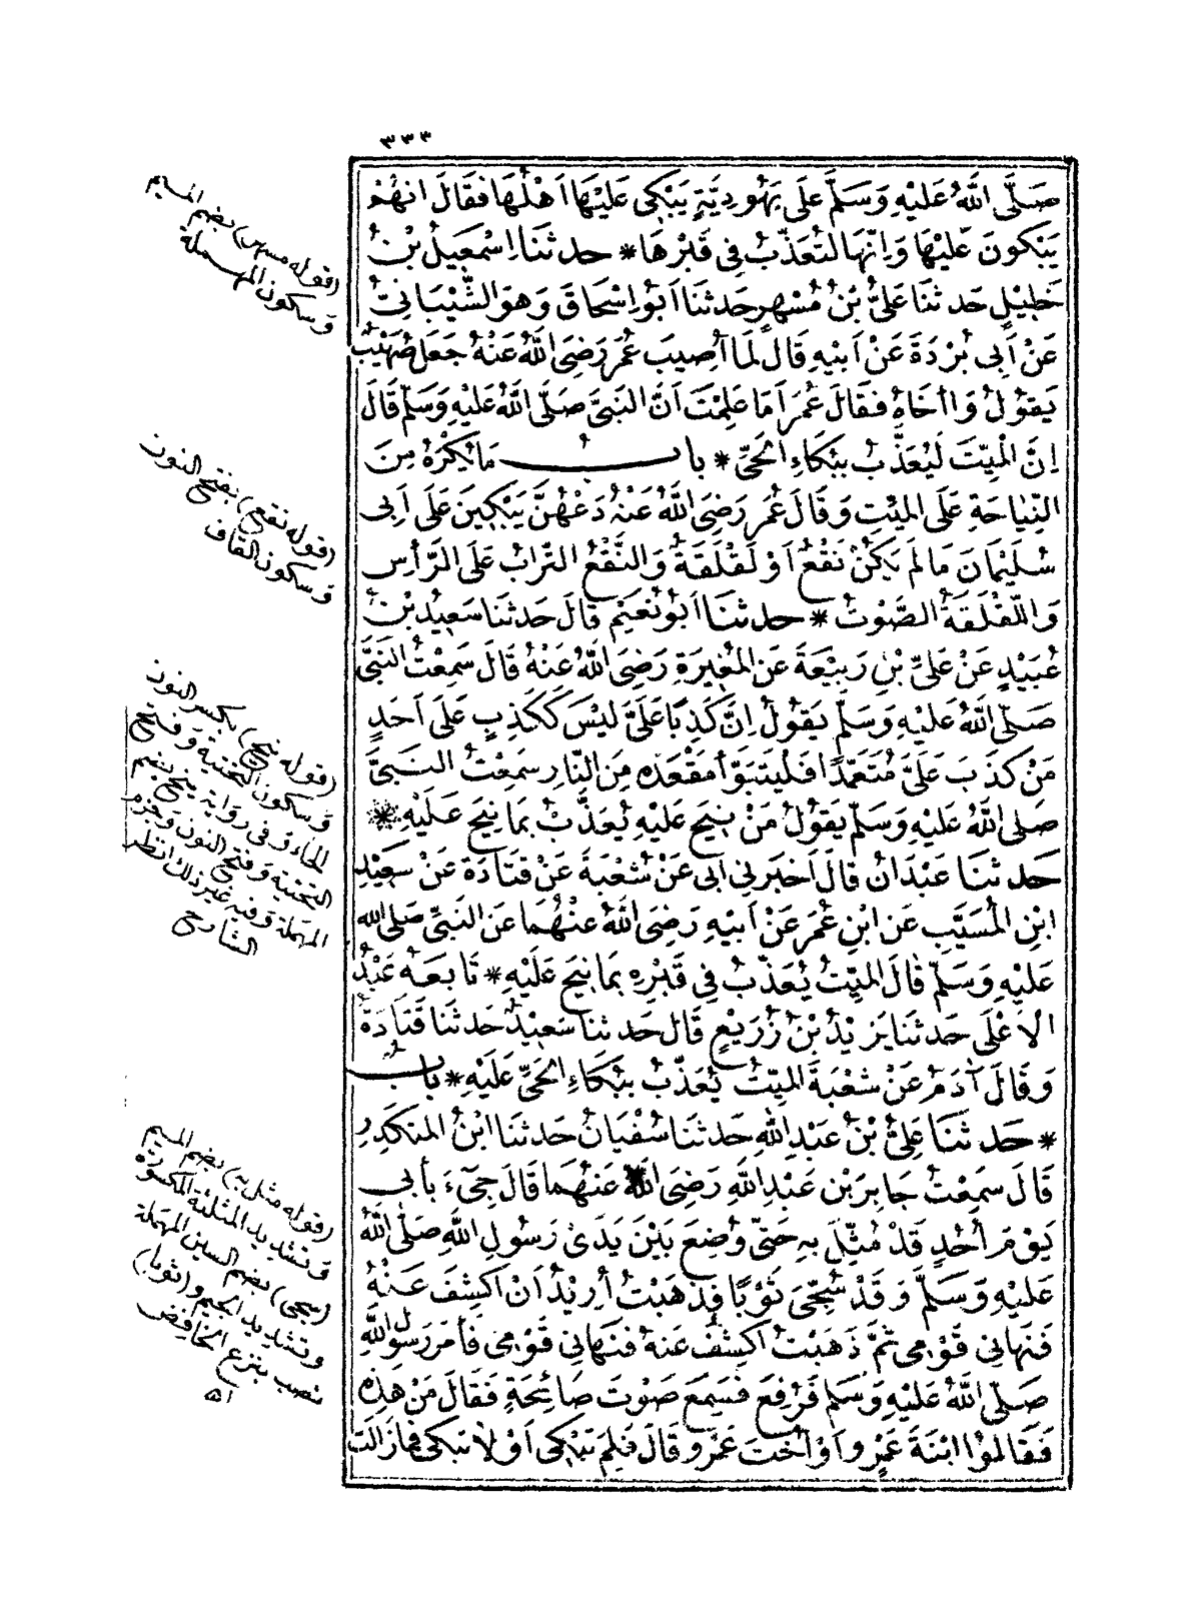 ٣٣٣
صَلَّى اللّٰهُ عَلَيْهِ وَسَلَّمَ عَلَى يَهُودِيَّةٍ يَبْكِى عَلَيْهَا اَهْلُهَا فَقَالَ اِنَّهُمْ
يَبْكُونَ عَلَيْهَا وَاِنَّهَا لَتُعَذَّبُ فِى قَبْرِهَا * حدثنَا اِسْمٰعِيلُ بْنُ
خَلِيْلٍ حَدثنَا عَلِىُّ بْنُ مُسْهِرٍ حَدثنَا اَبُو اِسْحَاقَ وَهوَ الشَّيْبَانِىُّ
عَنْ اَبِى بُرْدَةَ عَنْ اَبِيْهِ قَالَ لَمَّا اُصِيبَ عُمَر رَضِىَ اللّٰهُ عَنْهُ جَعَلَ صُهَيْبٌ
يَقوُلُ وَااَخَاهُ فَقَالَ عُمَرُ اَمَا عَلِمْتَ اَنَّ النَّبِىَّ صَلَّى اللّٰهُ عَلَيْهِ وَسَلَّمَ قَالَ
اِنَّ الْمَيِّتَ لَيُعَذَّبُ بِبُكَاءِ الْحَىِّ * بابُ مَا يُكْرَهُ مِنَ
النِّيَاحَةِ عَلَى المَيِّتِ وَقَالَ عُمَر رَضِىَ اللّٰهُ عَنْهُ دَعْهُنَّ يَبْكِينَ عَلَى اَبِى
سُلَيْمَانَ مَا لَمْ يَكُنْ نَقْعٌ اَوْ لَقْلَقَةٌ وَالنَّقْعُ التّرَابُ عَلَى الرَّأْسِ
وَاللَّقْلَقَةُ الصَّوْتُ * حدثنَا اَبُو نُعَيْمٍ قالَ حَدثنَا سَعِيدُ بْنُ
عُبَيْدٍ عَنْ عَلِىِّ بْنِ رَبِيْعَةَ عَنِ المُغِيرَةِ رَضِىَ اللّٰهُ عَنْهُ قَالَ سَمِعْتُ النَّبِىَّ
صَلَّى اللّٰهُ عَلَيْهِ وَسَلَّمَ يَقُولُ اِنَّ كَذِبًا عَلَىَّ لَيْسَ كَكَذِبٍ عَلَى اَحَدٍ
مَنْ كَذَبَ عَلَىَّ مُتَعَمِّدًا فَليَتَبَوَّأْ مَقْعَدَهُ مِنَ النَّارِ سَمِعْتُ النَّبِىَّ
صَلى اللّٰهُ عَلَيْهِ وَسَلَّمَ يَقُولُ مَنْ نِيحَ عَلَيْهِ يُعَذَّبْ بِمَا نِيحَ عَلَيْهِ *
حَدثنَا عَبْدَانُ قَالَ اَخبَرنِى اَبِى عَنْ شُعْبَةَ عَنْ قتَادَةَ عَنْ سَعِيْدِ
ابْنِ الْمُسَيَّبِ عَنِ ابْنِ عُمَرَ عَنْ اَبِيْهِ رَضِىَ اللّٰهُ عَنْهُمَا عَنِ النَّبِىِّ صَلى اللّٰه
عَلَيْهِ وَسَلَّمَ قالَ المَيِّتُ يُعَذَّبُ فِى قَبْرِهِ بِمَا نِيحَ عَلَيْهِ * تَابَعَهُ عَبْدُ
الاَعْلَى حَدثنَا يَزِيدُ بْنُ زُرَيْعٍ قَالَ حَدثنَا سَعِيْدٌ حَدثنَا قَتَادَةُ
وَقَالَ آدَمُ عَنْ شعْبَةَ المَيِّتُ يُعَذَّبُ بِبُكَاءِ الْحَىِّ عَلَيْهِ * بابُ
* حَدثَنَا عَلِىُّ بْنُ عَبْدِ اللّٰهِ حَدثنَا سُفْيَانُ حَدثنَا ابْنُ المُنْكَدِرِ
قَالَ سَمِعْتُ جَابِرَ بْن عَبْدِ اللّٰهِ رَضِىَ اللّٰهُ عَنْهُمَا قَالَ جِىءَ بأبى
يَوْمَ اُحُدٍ قَدْ مُثِّلَ بِهِ حَتَّى وُضِعَ بَيْنَ يَدَىْ رَسُولِ اللّٰهِ صَلَّى اللّٰهُ
عَلَيْهِ وَسَلَّمَ وَقَدْ سُجِّىَ ثَوْبًا فَذَهَبْتُ اُرِيْدُ اَنْ اَكشِفَ عَنْهُ
فَنَهَانِى قَوْمِى ثُمَّ ذَهَبْتُ اَكْشِفُ عَنْهُ فَنَهَانِى قَوْمِى فَأَمَرَ رَسُولُ اللّٰهِ
صَلَّى اللّٰهُ عَلَيْهِ وَسَلم فَرُفِعَ فَسَمِعَ صَوْتَ صَائِحَةٍ فَقَالَ مَنْ هٰذِهِ
فَقَالُوْا ابْنَةُ عَمْرٍو اَوْ اُخْتُ عَمْرٍو قَالَ فَلِمَ تَبْكِى اَوْ لَا تَبْكِى فَمَا زَالَتْ
(قوله مسهر) بضم الميم
وسكون المهملة
(قوله نقع) بفتح النون
وسكون القاف
(قوله نيح) بكسر النون
وسكون التحتية وفتح
الحاء وفى رواية ينح بضم
التحتية وفتح النون وجزم
المهملة وفيه غير ذلك انظر
الشارح
(قوله مثل به) بضم الميم
وتشديد المثلثة المكسورة
(سجى) بضم السين المهملة
وتشديد الجيم و(ثوبا)
نصب بنزع الخافض
اه